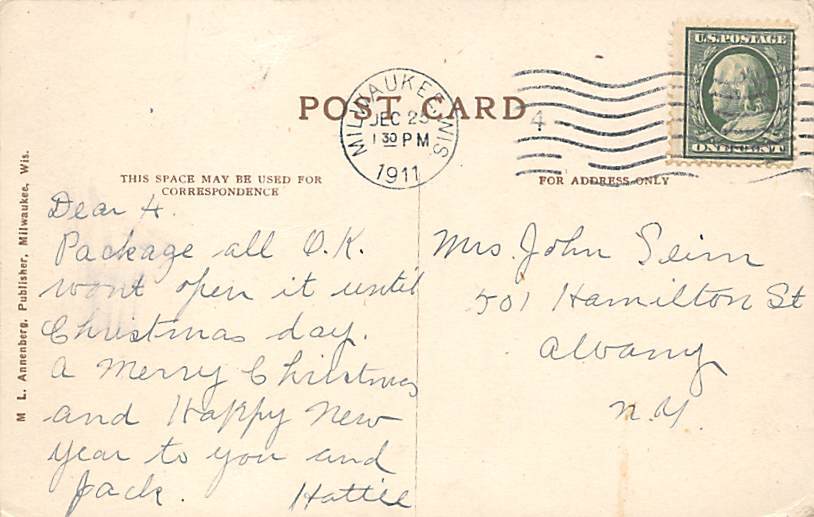 U.S. POSTAGE
ONE CENT
POST CARD
MILWAUKEE, WIS.
DEC 23
1 30 PM
1911
4
THIS SPACE MAY BE USED FOR
CORRESPONDENCE
FOR ADDRESS ONLY
M. L. Annenberg, Publisher, Milwaukee, Wis.
Dear H.
Package all O.K.
wont open it until
Christmas day.
A Merry Christmas
and Happy New
year to you and
Jack. Hattie
Mrs. John
501 Hamilton St
Albany
N.Y.